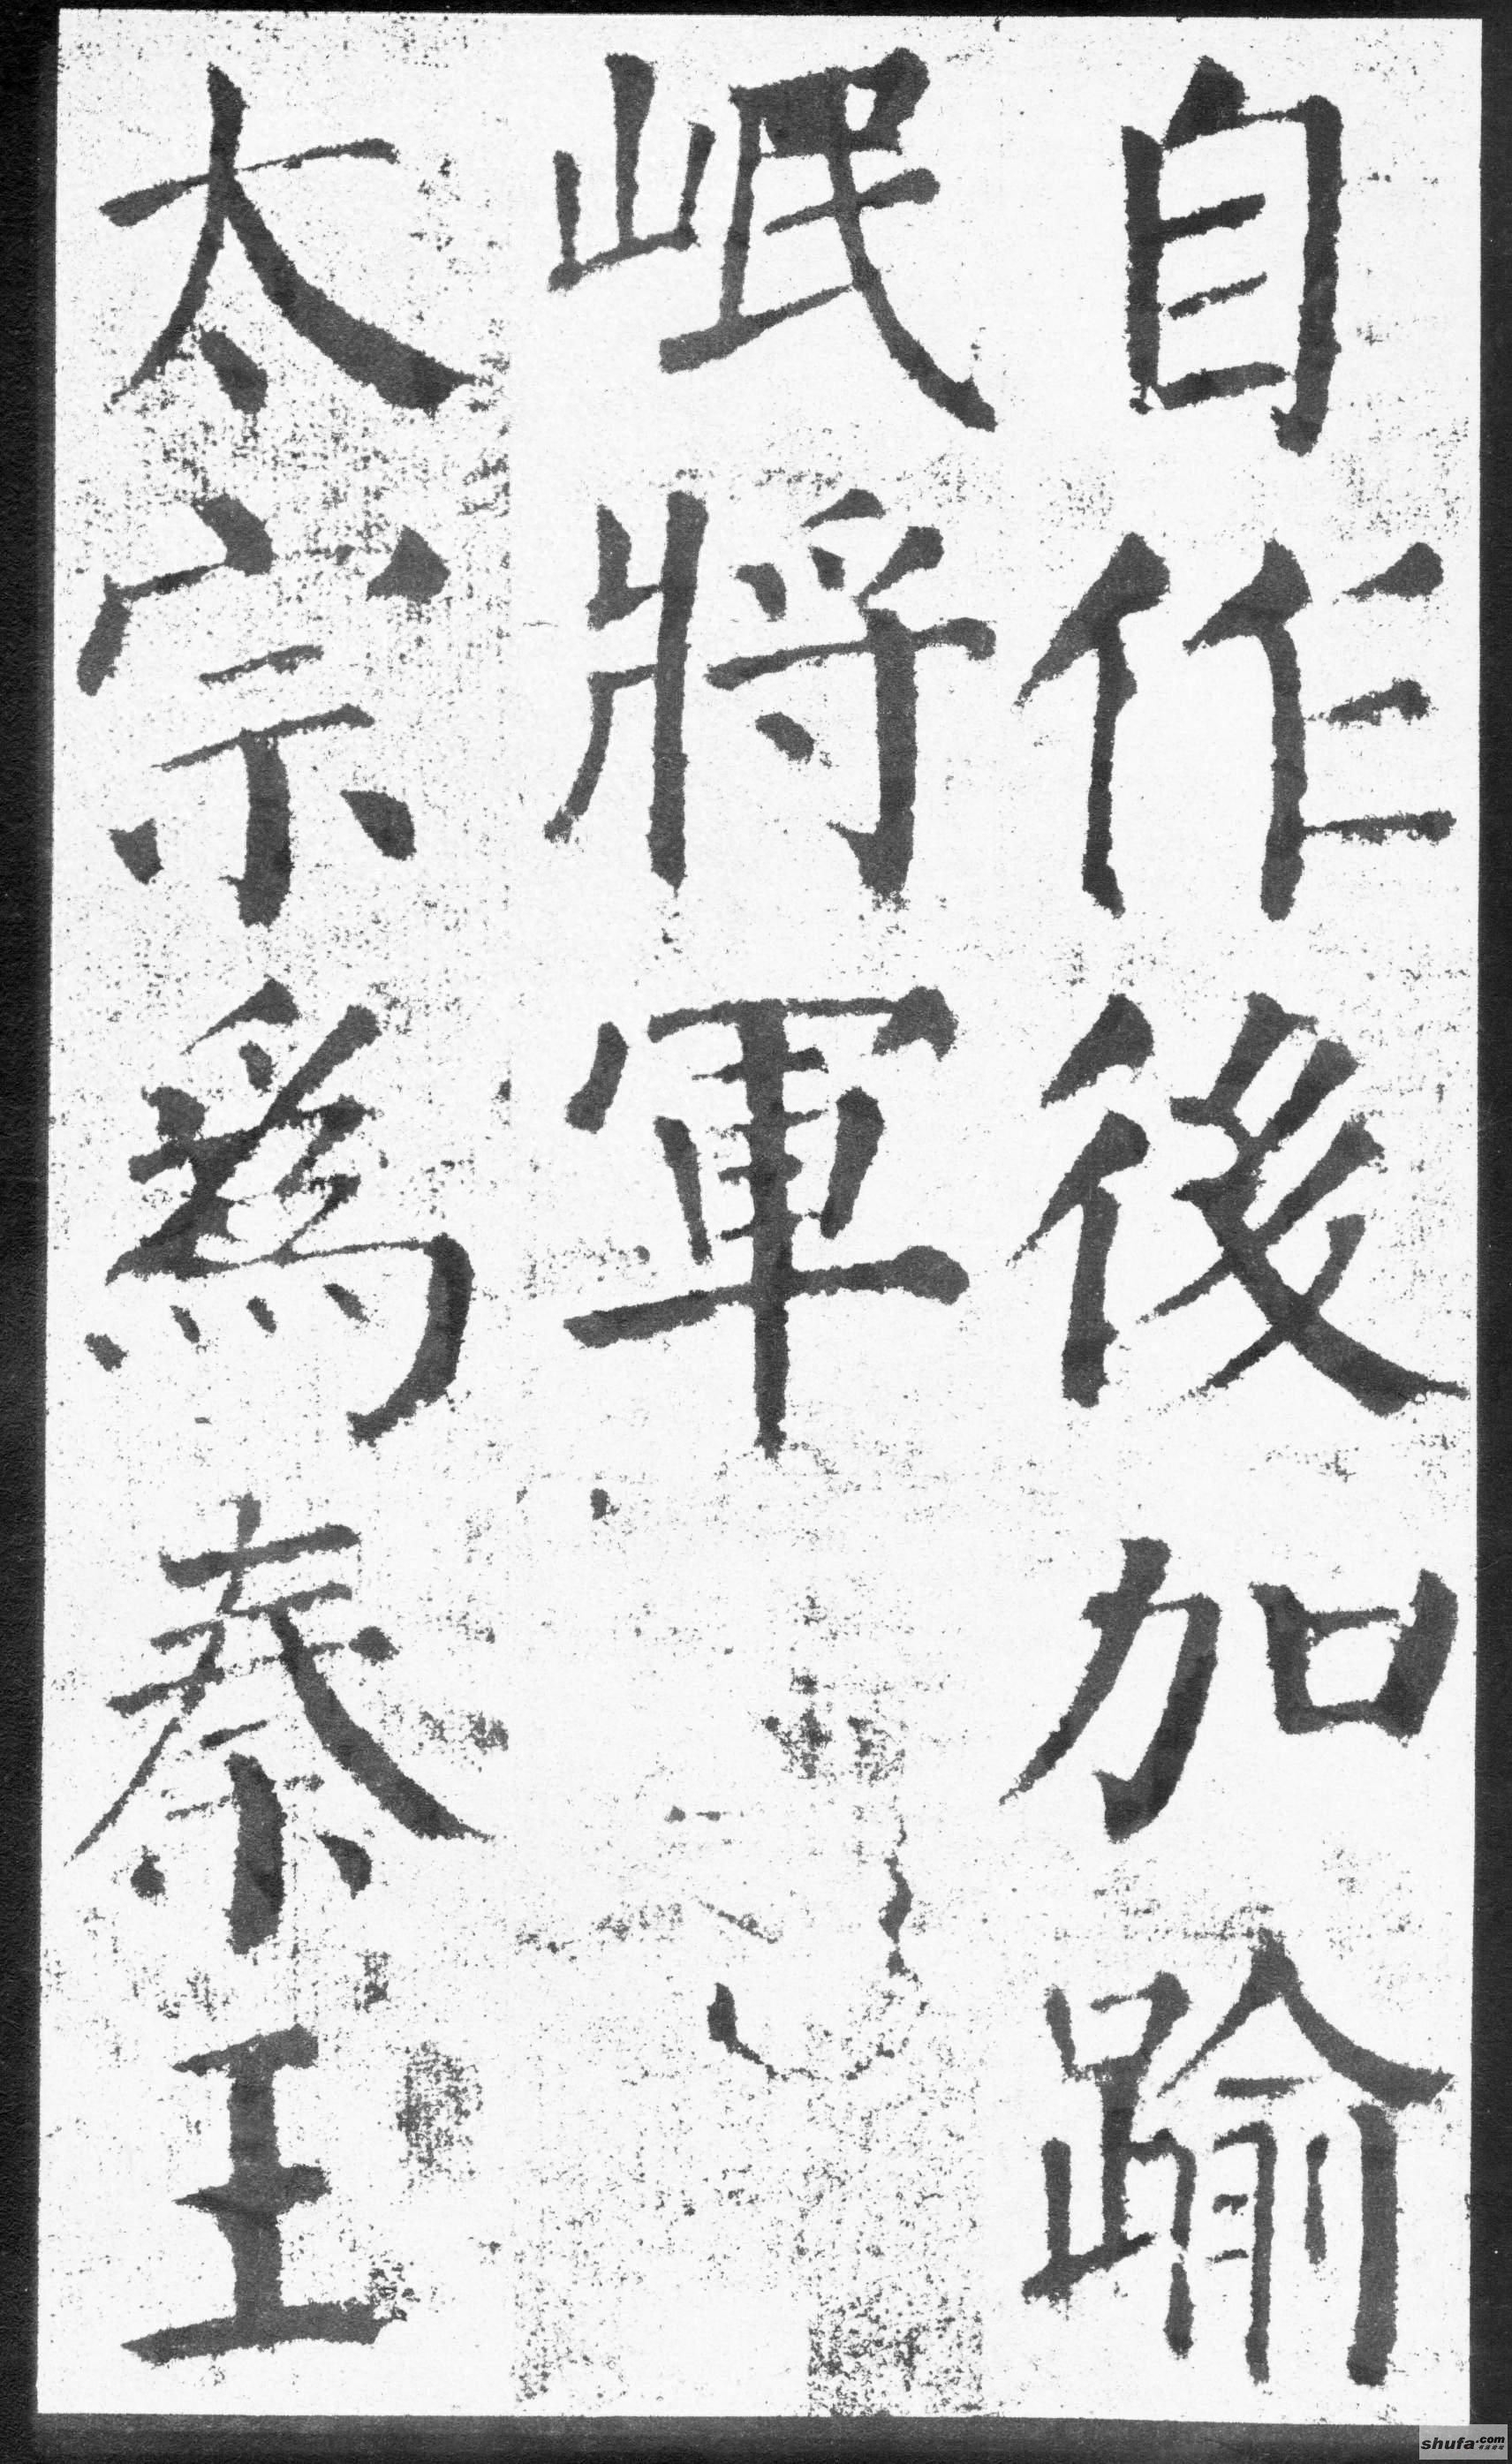 自作後加踰
岷將軍
太宗為秦王
shufa.com